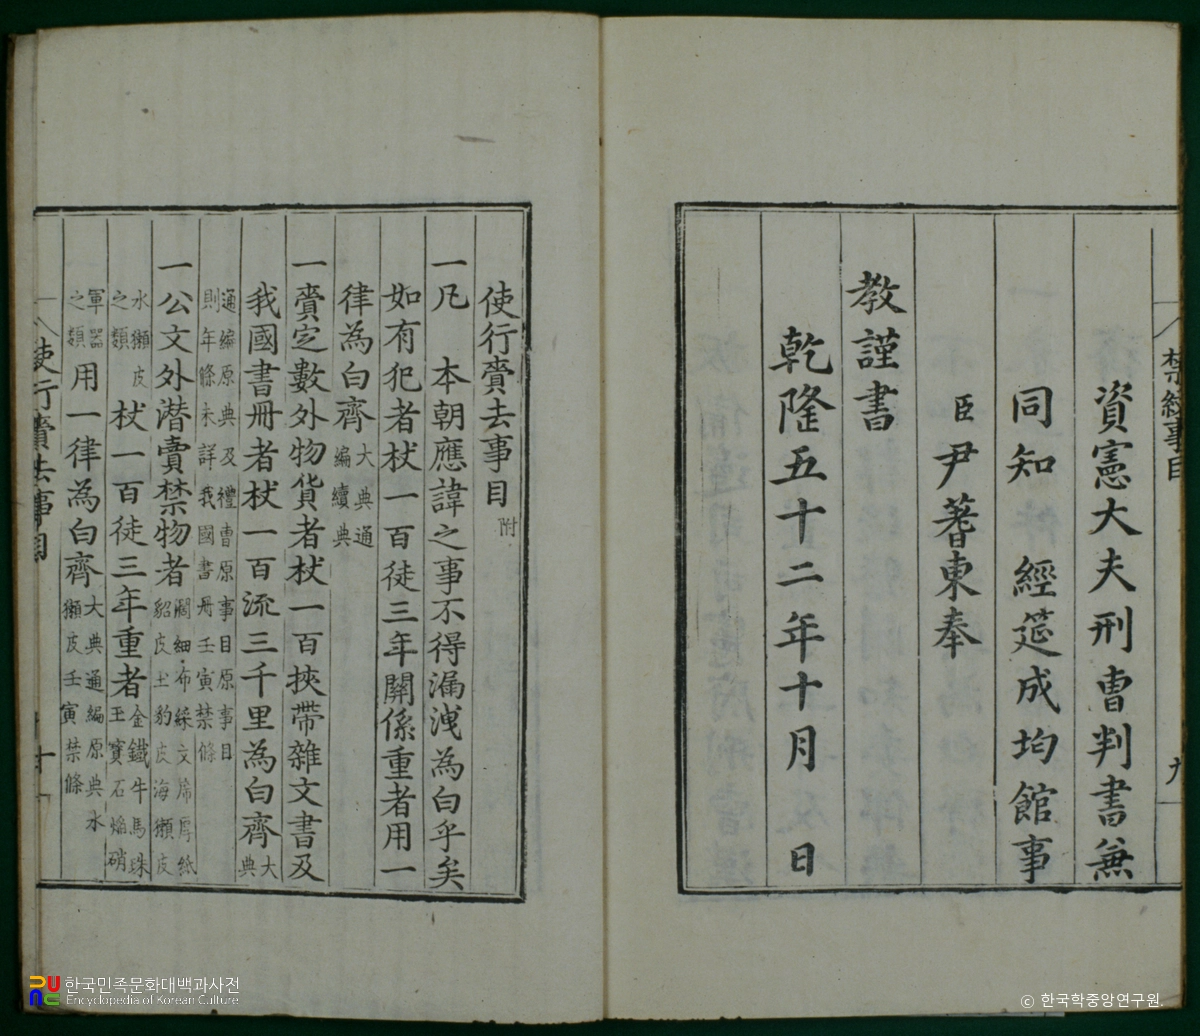 禁紋事目
九
資憲大夫刑曹判書兼
同知 經筵成均館事
臣尹蓍東奉
教謹書
乾隆五十二年十月 日
使行賫去事目附
一凡 本朝應諱之事不得漏洩為白乎矣
如有犯者杖一百徒三年關係重者用一
律為白齊大典通編續典
一賫定數外物貨者杖一百挾帶雜文書及
我國書冊者杖一百流三千里為白齊大典
通編原典及禮曹原事目原事目則年條未詳我國書冊壬寅禁條
一公文外潛賣禁物者闊細布綵文席厚紙貂皮土豹皮海獺皮
水獺皮之類杖一百徒三年重者金鐵牛馬珠玉寶石焰硝
軍器之類用一律為白齊大典通編原典水獺皮壬寅禁條
使行賫去事目
十
한국민족문화대백과사전
Encyclopedia of Korean Culture
© 한국학중앙연구원.